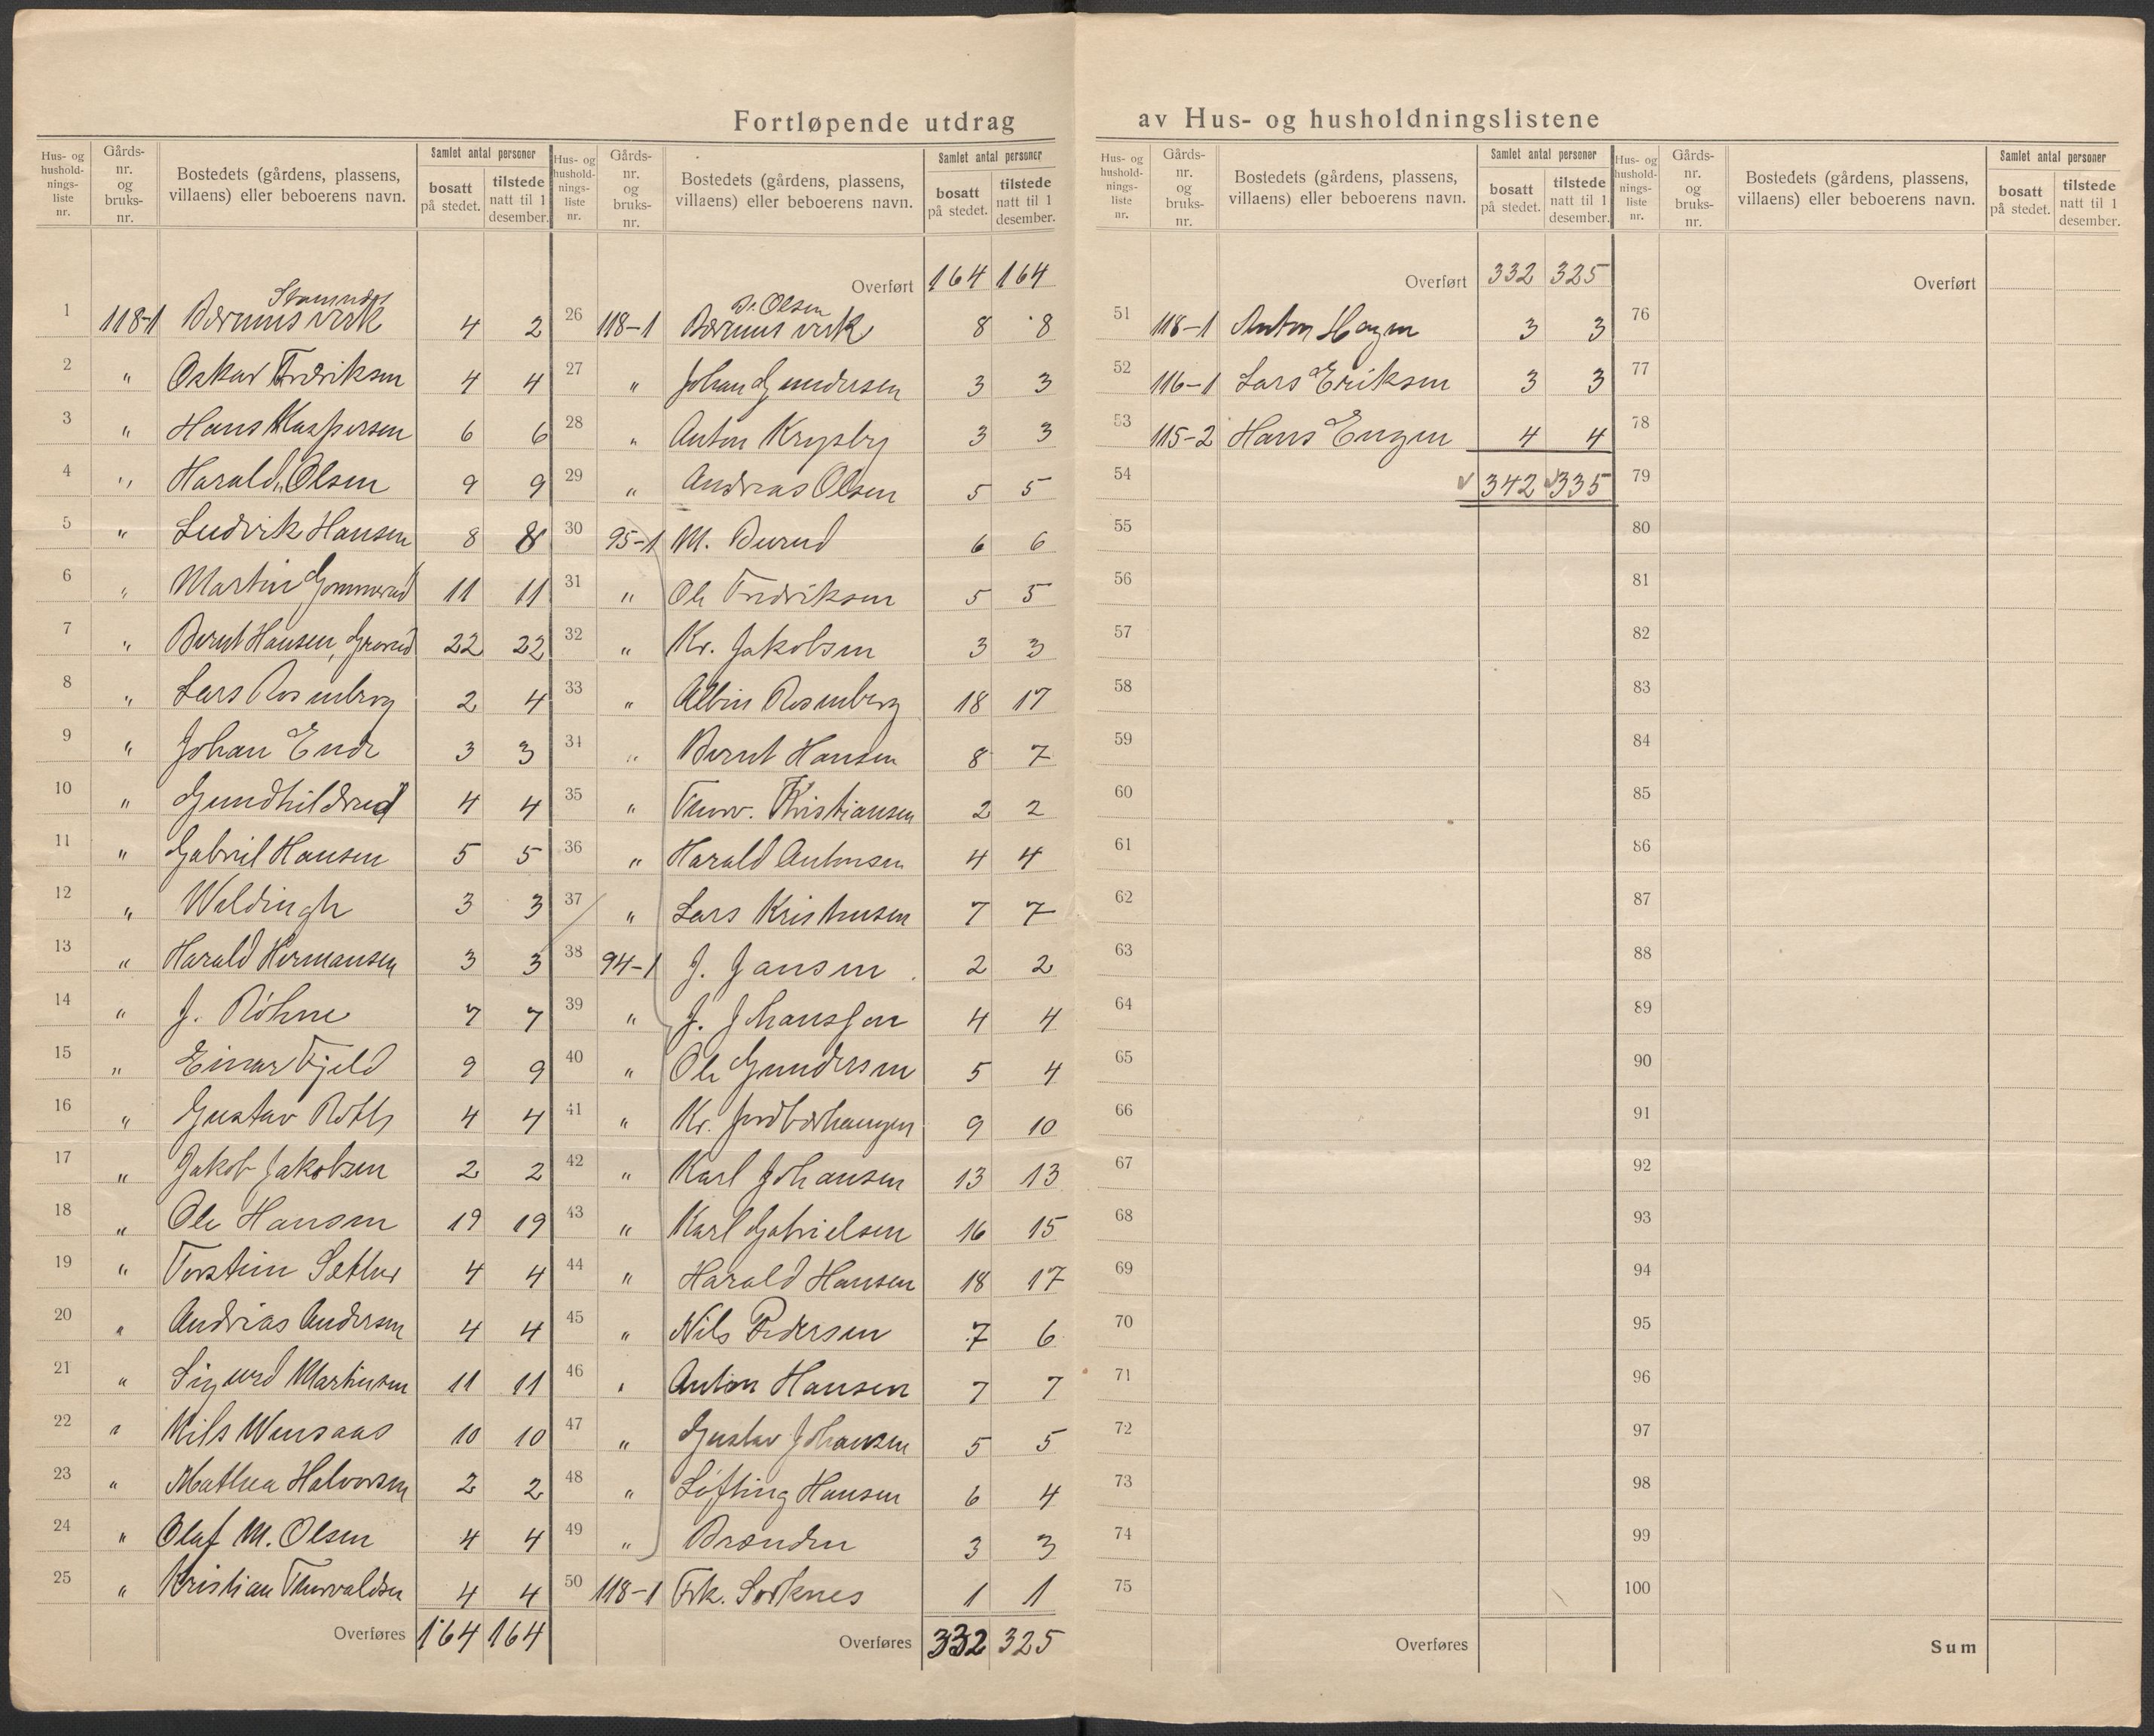 Fortløpende utdrag av Hus- og husholdningslistene
Hus- og hushold-nings-liste nr. | Gårds-nr. og bruks-nr. | Bostedets (gårdens, plassens, villaens) eller beboerens navn. | Samlet antal personer | bosatt på stedet. | tilstede natt til 1 desember.
1 118-1 Bærums verk 4 2
2 " Oskar Fredriksen 4 4
3 " Hans Kaspersen 6 6
4 " Harald Olsen 9 9
5 " Ludvik Hansen 8 8
6 " Martin Gommerud 11 11
7 " Bernt Hansen, 22 22
8 " Lars Rosenberg 2 4
9 " Johan Ende 3 3
10 " Gundhildrud 4 4
11 " Gabriel Hansen 5 5
12 " Weldingh 3 3
13 " Harald Hermansen 3 3
14 " J. Röhne 7 7
15 " Einar Fjeld 9 9
16 " Gustav 4 4
17 " Jakob Jakobsen 2 2
18 " Ole Hansen 19 19
19 " Torstein 4 4
20 " Andreas Andersen 4 4
21 " Sigurd Martinsen 11 11
22 " Nils Wensaas 10 10
23 " Mathea Halvorsen 2 2
24 " Olaf M. Olsen 4 4
25 " Kristian Thorvaldsen 4 4
Overføres 164 164
Hus- og hushold-nings-liste nr. | Gårds-nr. og bruks-nr. | Bostedets (gårdens, plassens, villaens) eller beboerens navn. | Samlet antal personer | bosatt på stedet. | tilstede natt til 1 desember.
Overført 164 164
Olsen
26 118-1 Bærums verk 8 8
27 " Johan Gundersen 3 3
28 " Anton Krysby 3 3
29 " Andreas Olsen 5 5
30 95-1 M. Burud 6 6
31 " Ole Fredriksen 5 5
32 " Kr. Jakobsen 3 3
33 " Albin Rosenberg 18 17
34 " Bernt Hansen 8 7
35 " Thorv. Kristiansen 2 2
36 " Harald Antonsen 4 4
37 " Lars Kristensen 7 7
38 94-1 J. Jansen 2 2
39 " J. Johansson 4 4
40 " Ole Gundersen 5 4
41 " Kr. Jordbærhaugen 9 10
42 " Karl Johansen 13 13
43 " Karl Gabrielsen 16 15
44 " Harald Hansen 18 17
45 " Nils Pedersen 7 6
46 " Anton Hansen 7 7
47 " Gustav Johansen 5 5
48 " Løfting Hansen 6 4
49 " Brænden 3 3
50 118-1 Frk. Sorknes 1 1
Overføres 332 325
Hus- og hushold-nings-liste nr. | Gårds-nr. og bruks-nr. | Bostedets (gårdens, plassens, villaens) eller beboerens navn. | Samlet antal personer | bosatt på stedet. | tilstede natt til 1 desember.
Overført 332 325
51 118-1 Anton Hagen 3 3
52 116-1 Lars Eriksen 3 3
53 115-2 Hans Engen 4 4
54 342 335
55
56
57
58
59
60
61
62
63
64
65
66
67
68
69
70
71
72
73
74
75
Overføres
Hus- og hushold-nings-liste nr. | Gårds-nr. og bruks-nr. | Bostedets (gårdens, plassens, villaens) eller beboerens navn. | Samlet antal personer | bosatt på stedet. | tilstede natt til 1 desember.
Overført
76
77
78
79
80
81
82
83
84
85
86
87
88
89
90
91
92
93
94
95
96
97
98
99
100
Sum